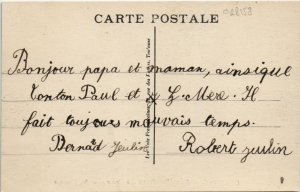 CARTE POSTALE
Bonjour papa et maman, ainsique
tonton Paul et g Z. Mere. Il
fait toujours mauvais temps.
Bernard Jeulin Robert jeulin